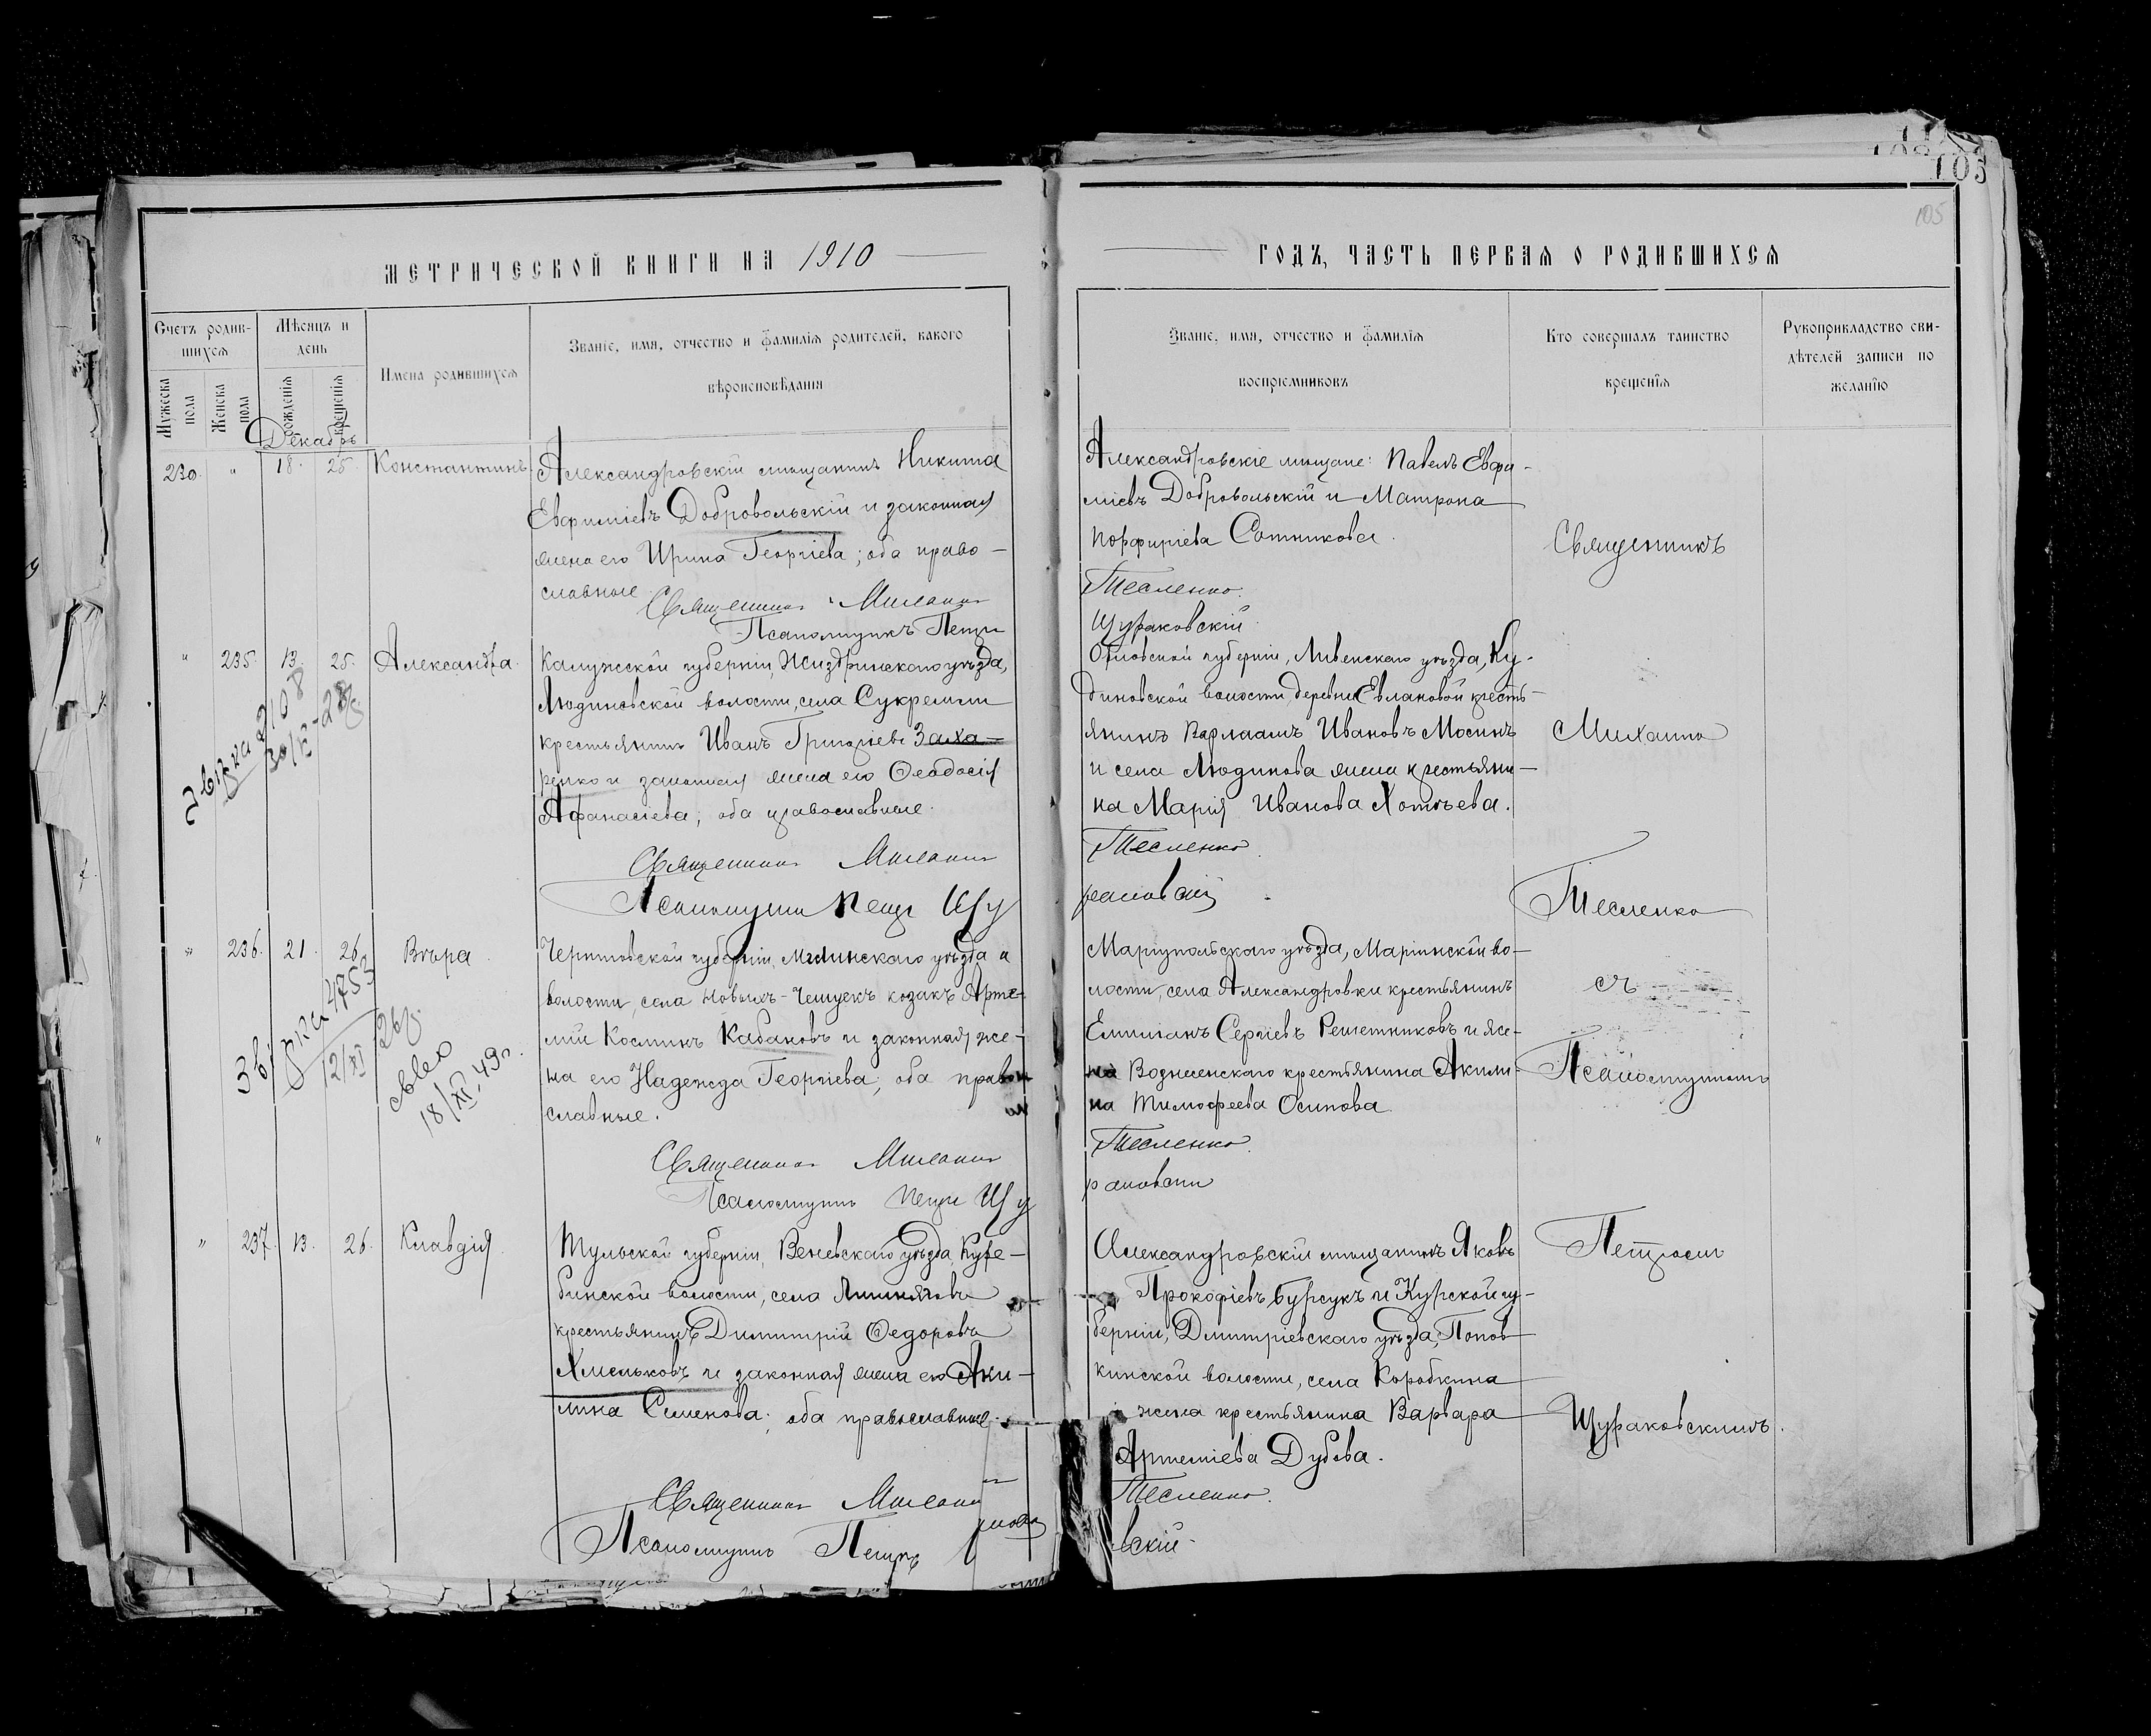 105
105
МЕТРИЧЕСКОЙ КНИГИ НА 1910
ГОДЪ, ЧАСТЬ ПЕРВАЯ О РОДИВШИХСЯ
Счетъ родив-
шихся
Мужеска пола
Женска пола
Мѣсяцъ и
день
рожденія
крещенія
Имена родившихся
Званіе, имя, отчество и фамилія родителей, какого
вѣроисповѣданія
Званіе, имя, отчество и фамилія
воспріемниковъ
Кто совершалъ таинство
крещенія
Рукоприкладство сви-
дѣтелей записи по
желанію
Декабрь
230. " 18. 25. Константинъ
Александровскій мѣщанинъ Никита
Евфиміевъ Добровольскій и законная
жена его Ирина Георгіева; оба право-
славные.
Священникъ Михаилъ
Псаломщикъ Петръ
Александровскіе мѣщане: Павелъ Евфи-
міевъ Добровольскій и Матрона
Порфиріева Сотникова.
Тесленко.
Щураковскій.
" 235. 13. 25. Александра.
30/
Калужской губерніи, Жиздринскаго уѣзда,
Людиновской волости, села Сукремли
крестьянинъ Иванъ Григоріевъ Заха-
ренко и законная жена его Ѳеодосія
Афанасіева; оба православные.
Священникъ Михаилъ
Псаломщикъ Петръ Щу
Орловской губерніи, Ливенскаго уѣзда, Ку-
диновской волости, деревни Евлановой кресть-
янинъ Варлаамъ Ивановъ Мосинъ
и села Людинова жена крестьяни-
на Марія Иванова Хотѣева.
Тесленко.
раковскій
" 236. 21. 26. Вѣра.
4753
12/XI 26г.
18/XI. 49г.
Черниговской губерніи, Мглинскаго уѣзда и
волости, села Новыхъ-Чешуекъ козакъ Арте-
мій Косминъ Кабановъ и законная же-
на его Надежда Георгіева; оба право-
славные.
Священникъ Михаилъ
Псаломщикъ Петръ Щу
Маріупольскаго уѣзда, Маріинской во-
лости, села Александровки крестьянинъ
Емиліанъ Сергіевъ Решетниковъ и же-
на Вознесенскаго крестьянина Акили-
на Тимофеева Осипова.
Тесленко.
раковскій
" 237. 13. 26. Клавдія.
Тульской губерніи, Веневскаго уѣзда, Куре-
бинской волости, села
крестьянинъ Димитрій Ѳедоровъ
Хмельковъ и законная жена его Аки-
лина Семенова; оба православные.
Священникъ Михаилъ
Псаломщикъ Петръ
Александровскій мѣщанинъ Яковъ
Прокофіевъ Бурсукъ и Курской гу-
берніи, Дмитріевскаго уѣзда, Попов-
кинской волости, села Коробкина
жена крестьянина Варвара
Артеміева Дубова.
Тесленко.
вскій.
Священникъ
Михаилъ
Тесленко
съ
Псаломщикомъ
Петромъ
Щураковскимъ.